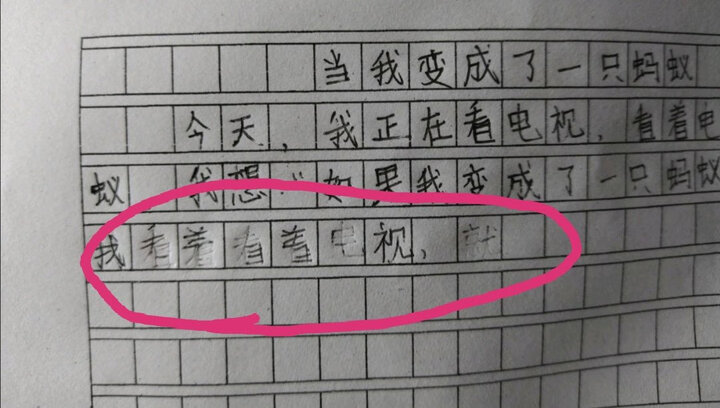 当我变成了一只蚂蚁
今天，我正在看电视，看着电
蚁 我想:"如果我变成了一只蚂蚁
我看着看着电视，就